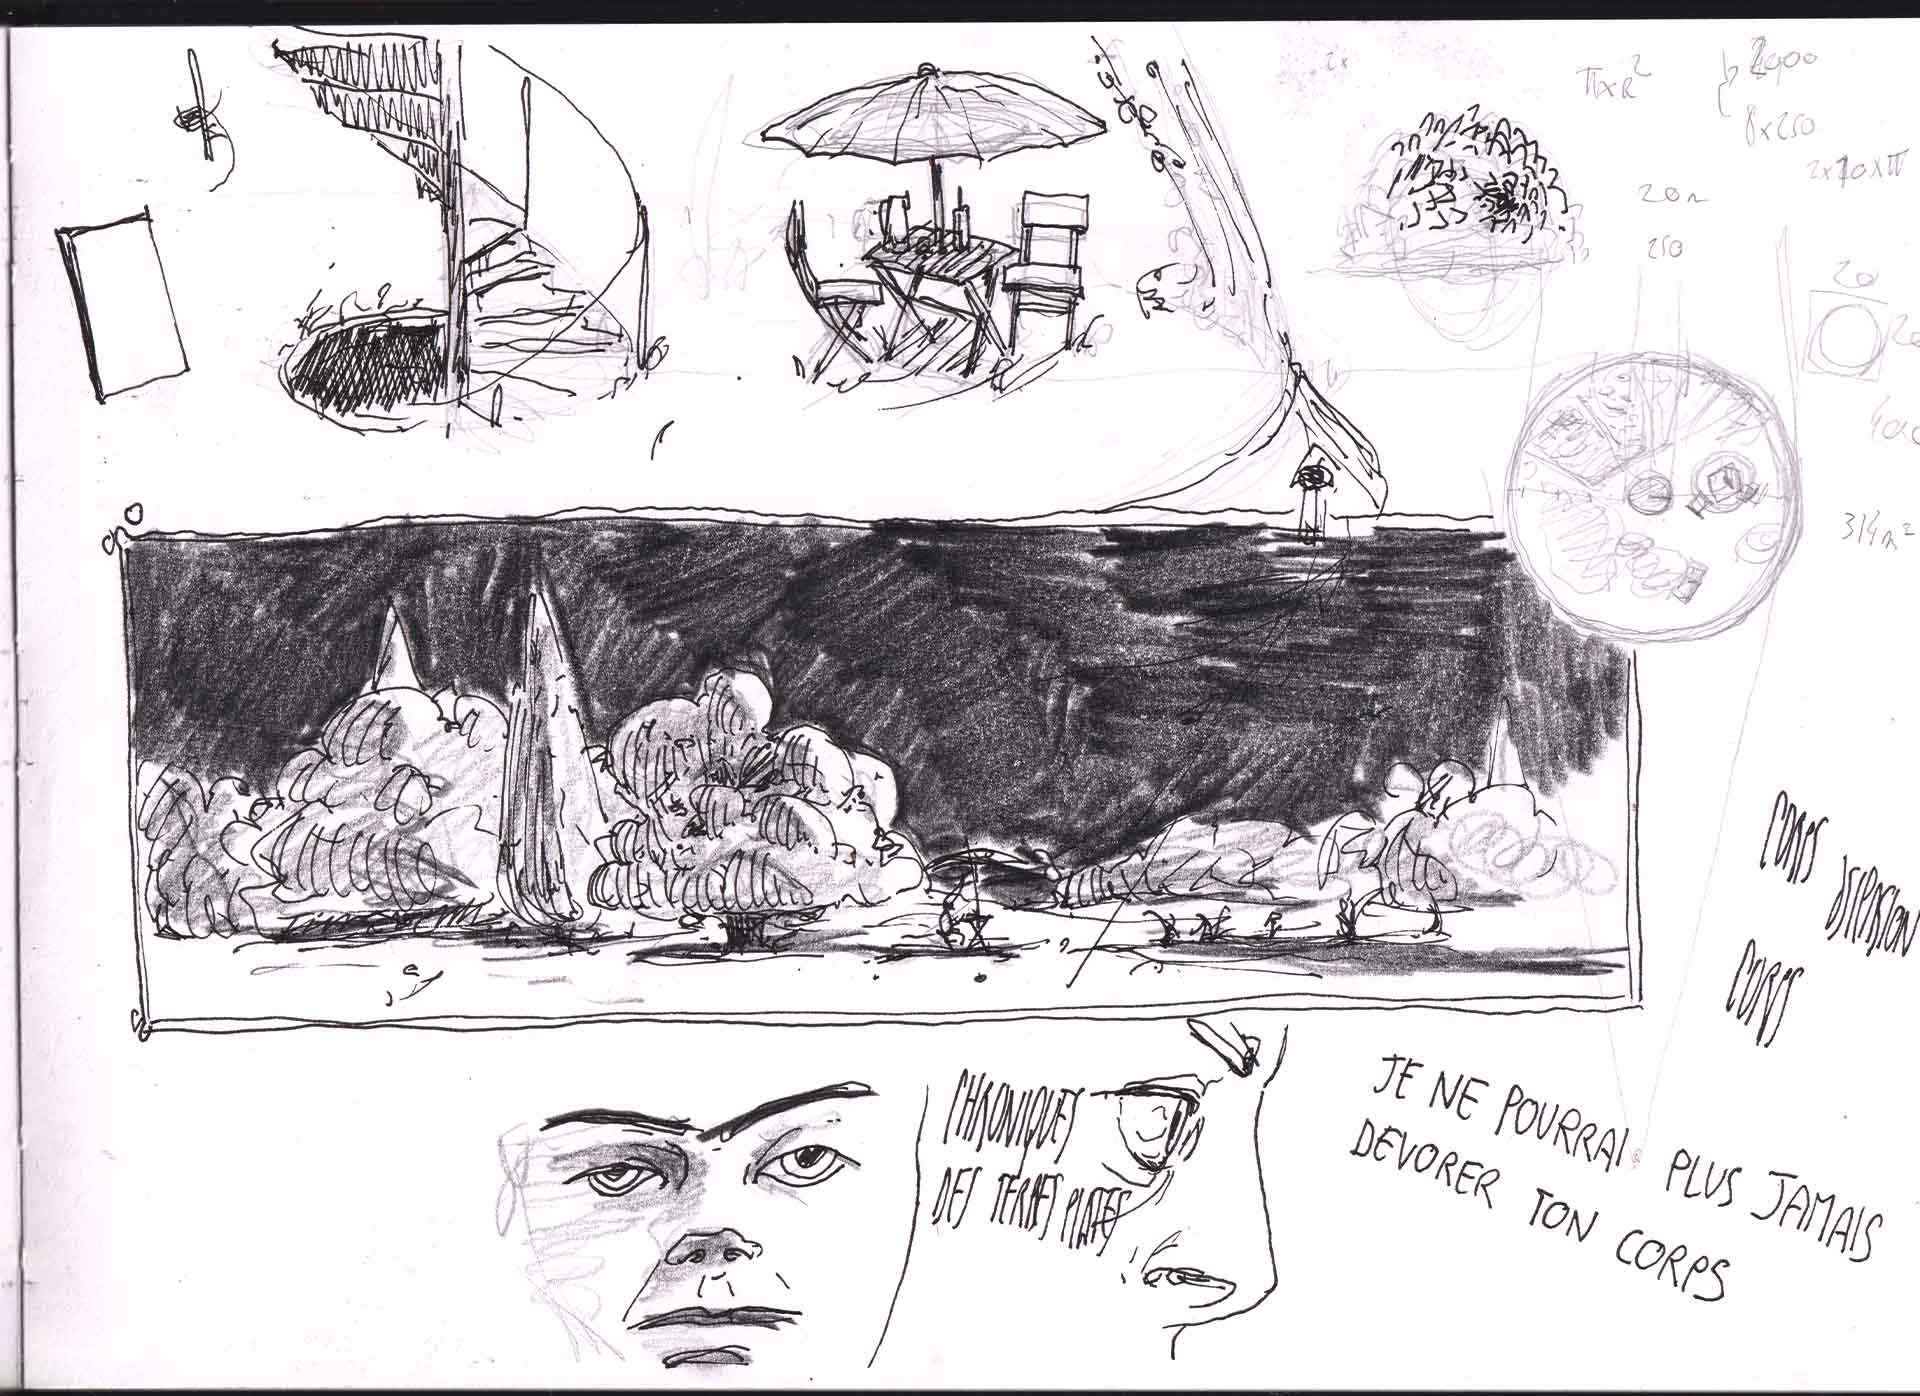 π x R²
2x
2400
8x250
2x10xπ
20m
250
20
20
400
314m²
CORPS
CORPS
CHRONIQUES
DES TERRES PLATES
JE NE POURRAI PLUS JAMAIS
DEVORER TON CORPS